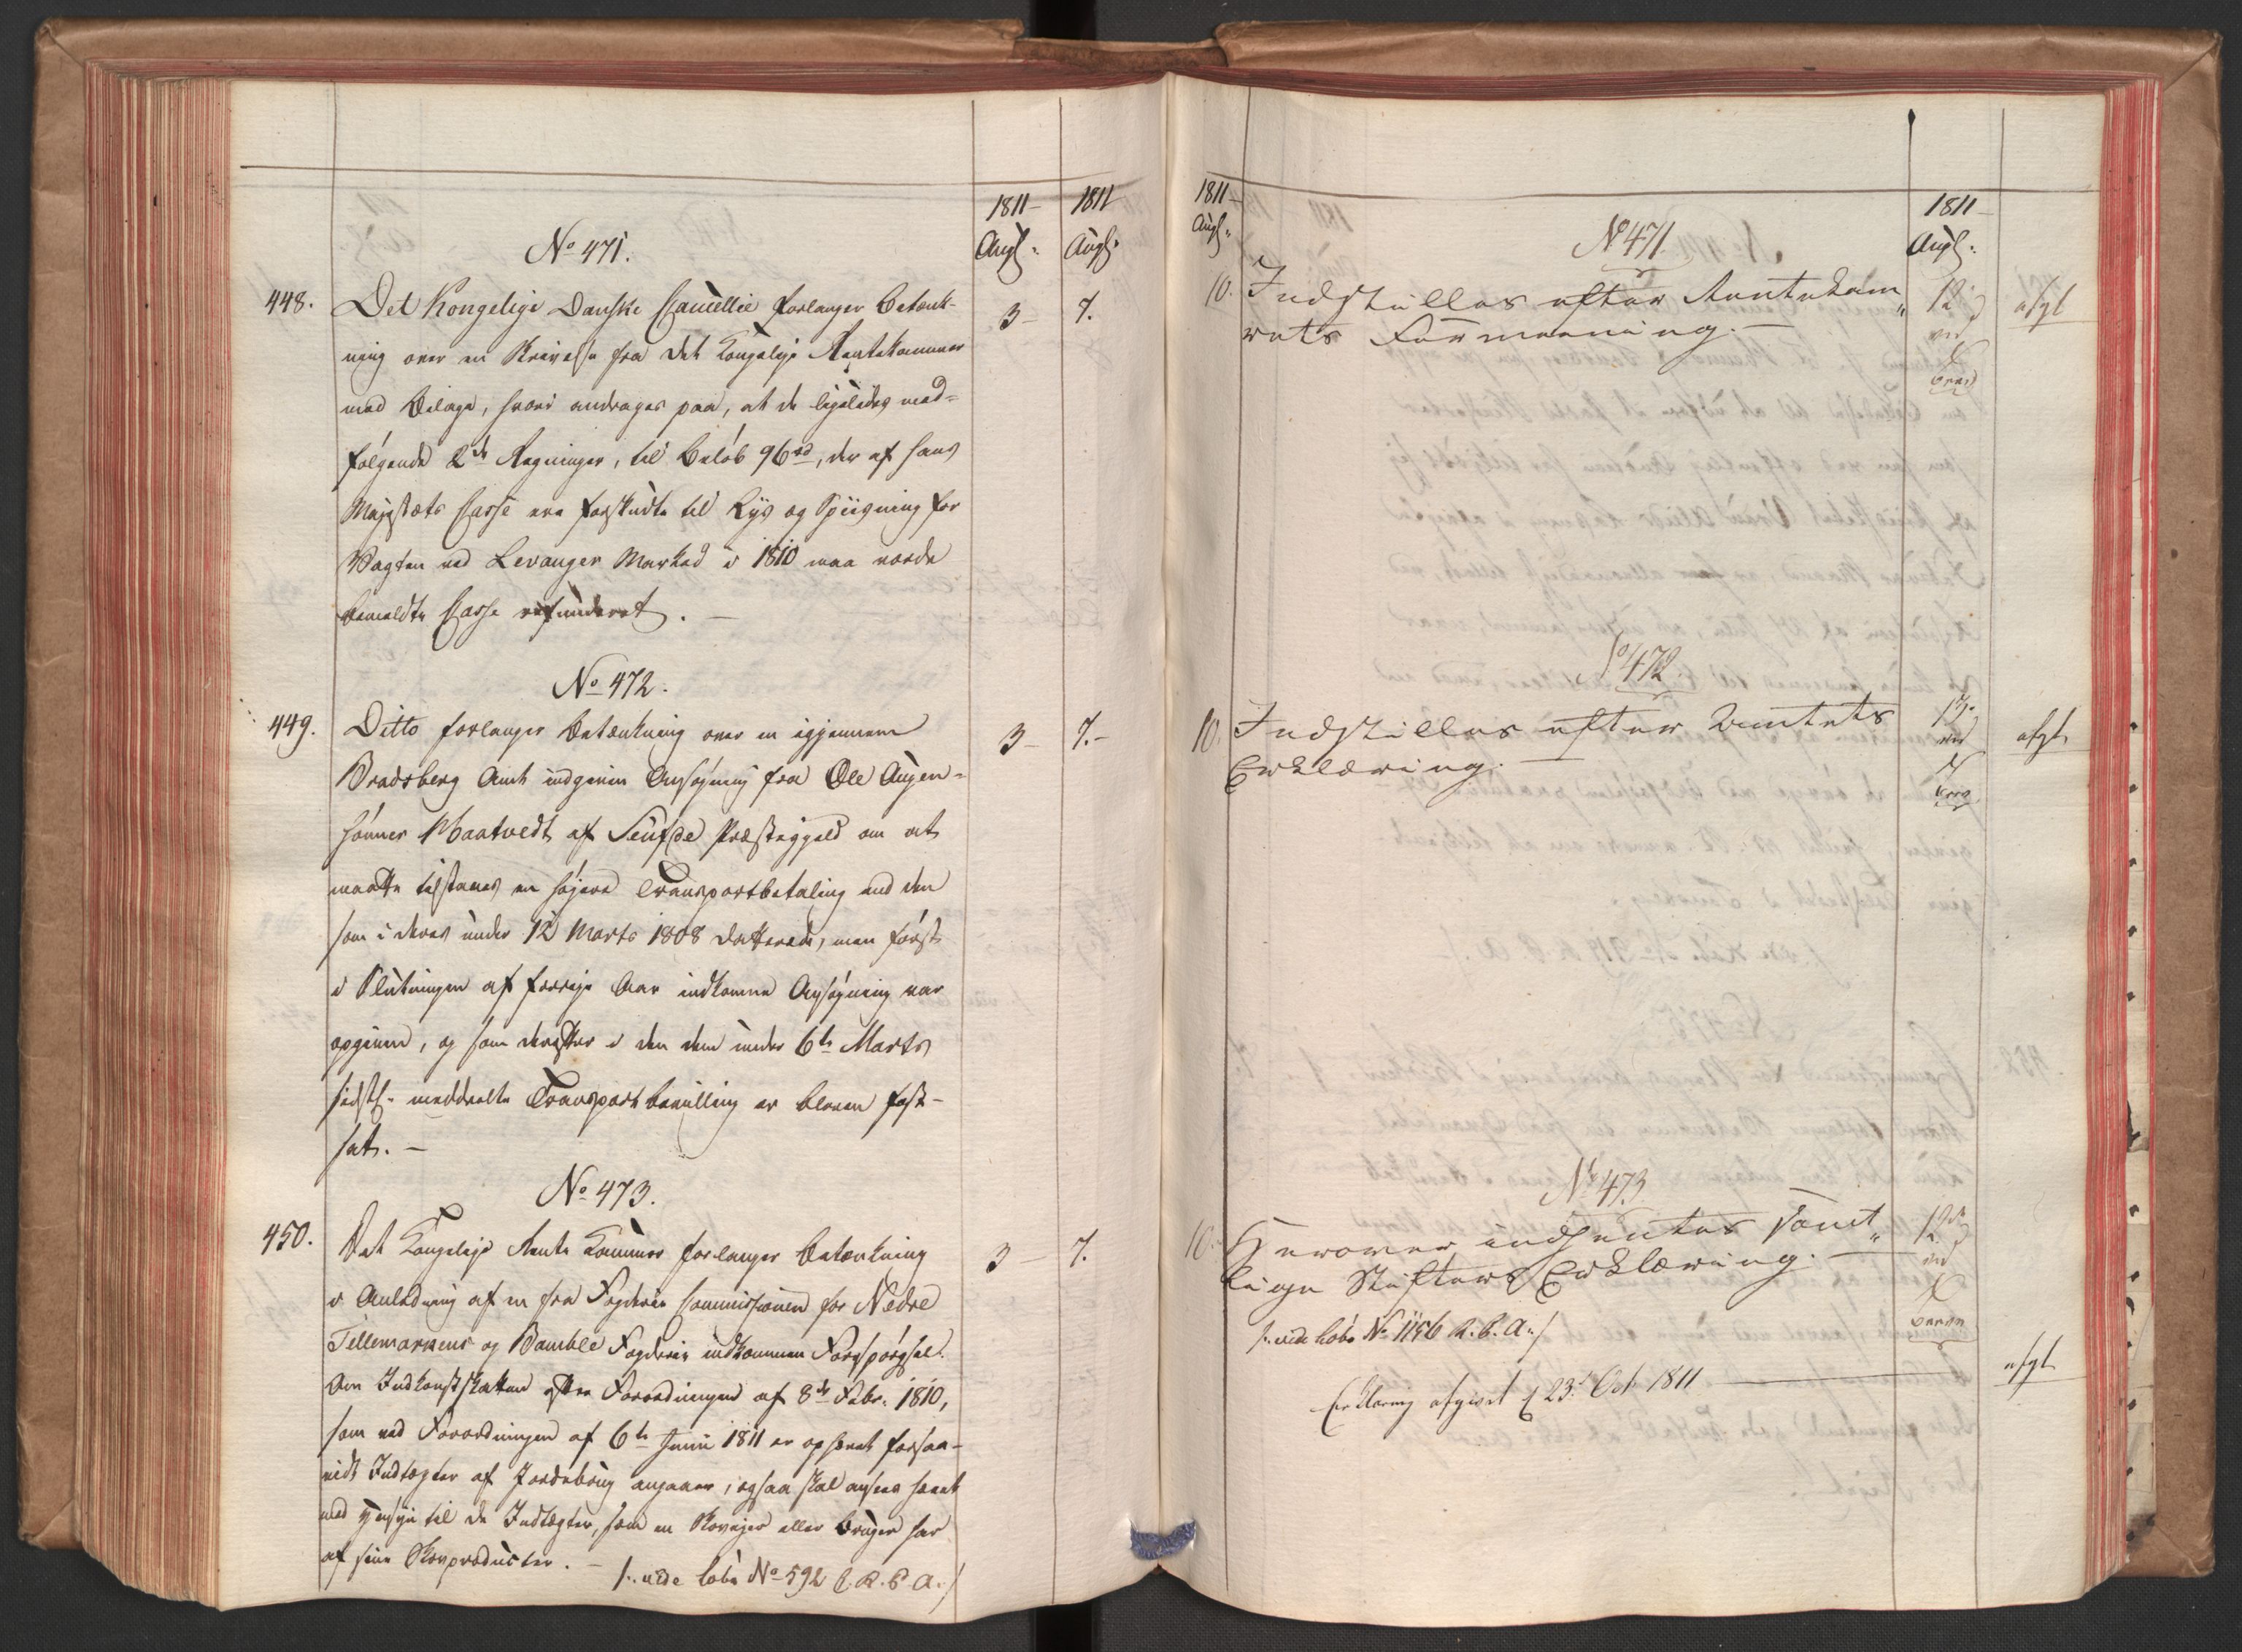 1811 –
Augt:
1811
Augt:
No 471.
448. Det Kongelige Danske Cancellie forlanger Betænk-
ning over en Skrivelse fra det Kongelige Rentekammer
med Bilage, hvori andrages paa, at de ligeledes med-
følgende 2de Regninger, til Beløb 96 rd, der af Hans
Majestæts Casse ere forskudte til Lys og Spiisning for
Vagten ved Levanger Marked i 1810 maa vorde
bemeldte Casse refunderet. –
3 – 7.
No 472.
449. Ditto forlanger Betænkning over en igjennem
Bradsberg Amt indgiven Ansøgning fra Ole Aagen-
sønner Maatvedt af Seufde Præstegjeld om at
maatte tilstaaes en høiere Transportbetaling end den
som i deres under 12 Marts 1808 datterede, men først
i Slutningen af forrige Aar indkomne Ansøgning var
opgiven, og som derefter i den dem under 6te Marts
sidstl. meddeelte Transportbevilling er bleven fast-
sat. –
3 – 7. –
No 473.
450. Det Kongelige Rente Kammer forlanger Betænkning
i Anledning af en fra Fogderie Commissionen for Nedre
Tellemarkens og Bamble Fogderie indkommen Forespørgsel.
Om Indkomstskatten efter Forordningen af 8de Febr. 1810,
som ved Forordningen af 6te Junii 1811 er ophævet forsaa-
vidt Indtægter af Jordebrug angaaer, ogsaa skal ansees hævet
med Hensyn til de Indtægter, som en Skovejer eller Bruger har
af sine Skovproducter. –
3 – 7.
/: vide løbe No 592 C. R. C. A. :/
1811 –
Augt:
1811 –
Augt:
No 471.
10. Indstilles efter Rentekam„
rets Formeening. –
12
ved
afgt
No 472.
10. Indstilles efter Amtets
Erklæring. –
13.
ved
afgt.
No 473.
10. Herover indhentes samt„
lige Stifters Erklæring. –
12
ved
/: vide løbe No 1156 R. C. A. :/
Erklæring afgivet d 23. Oct. 1811
afgt.